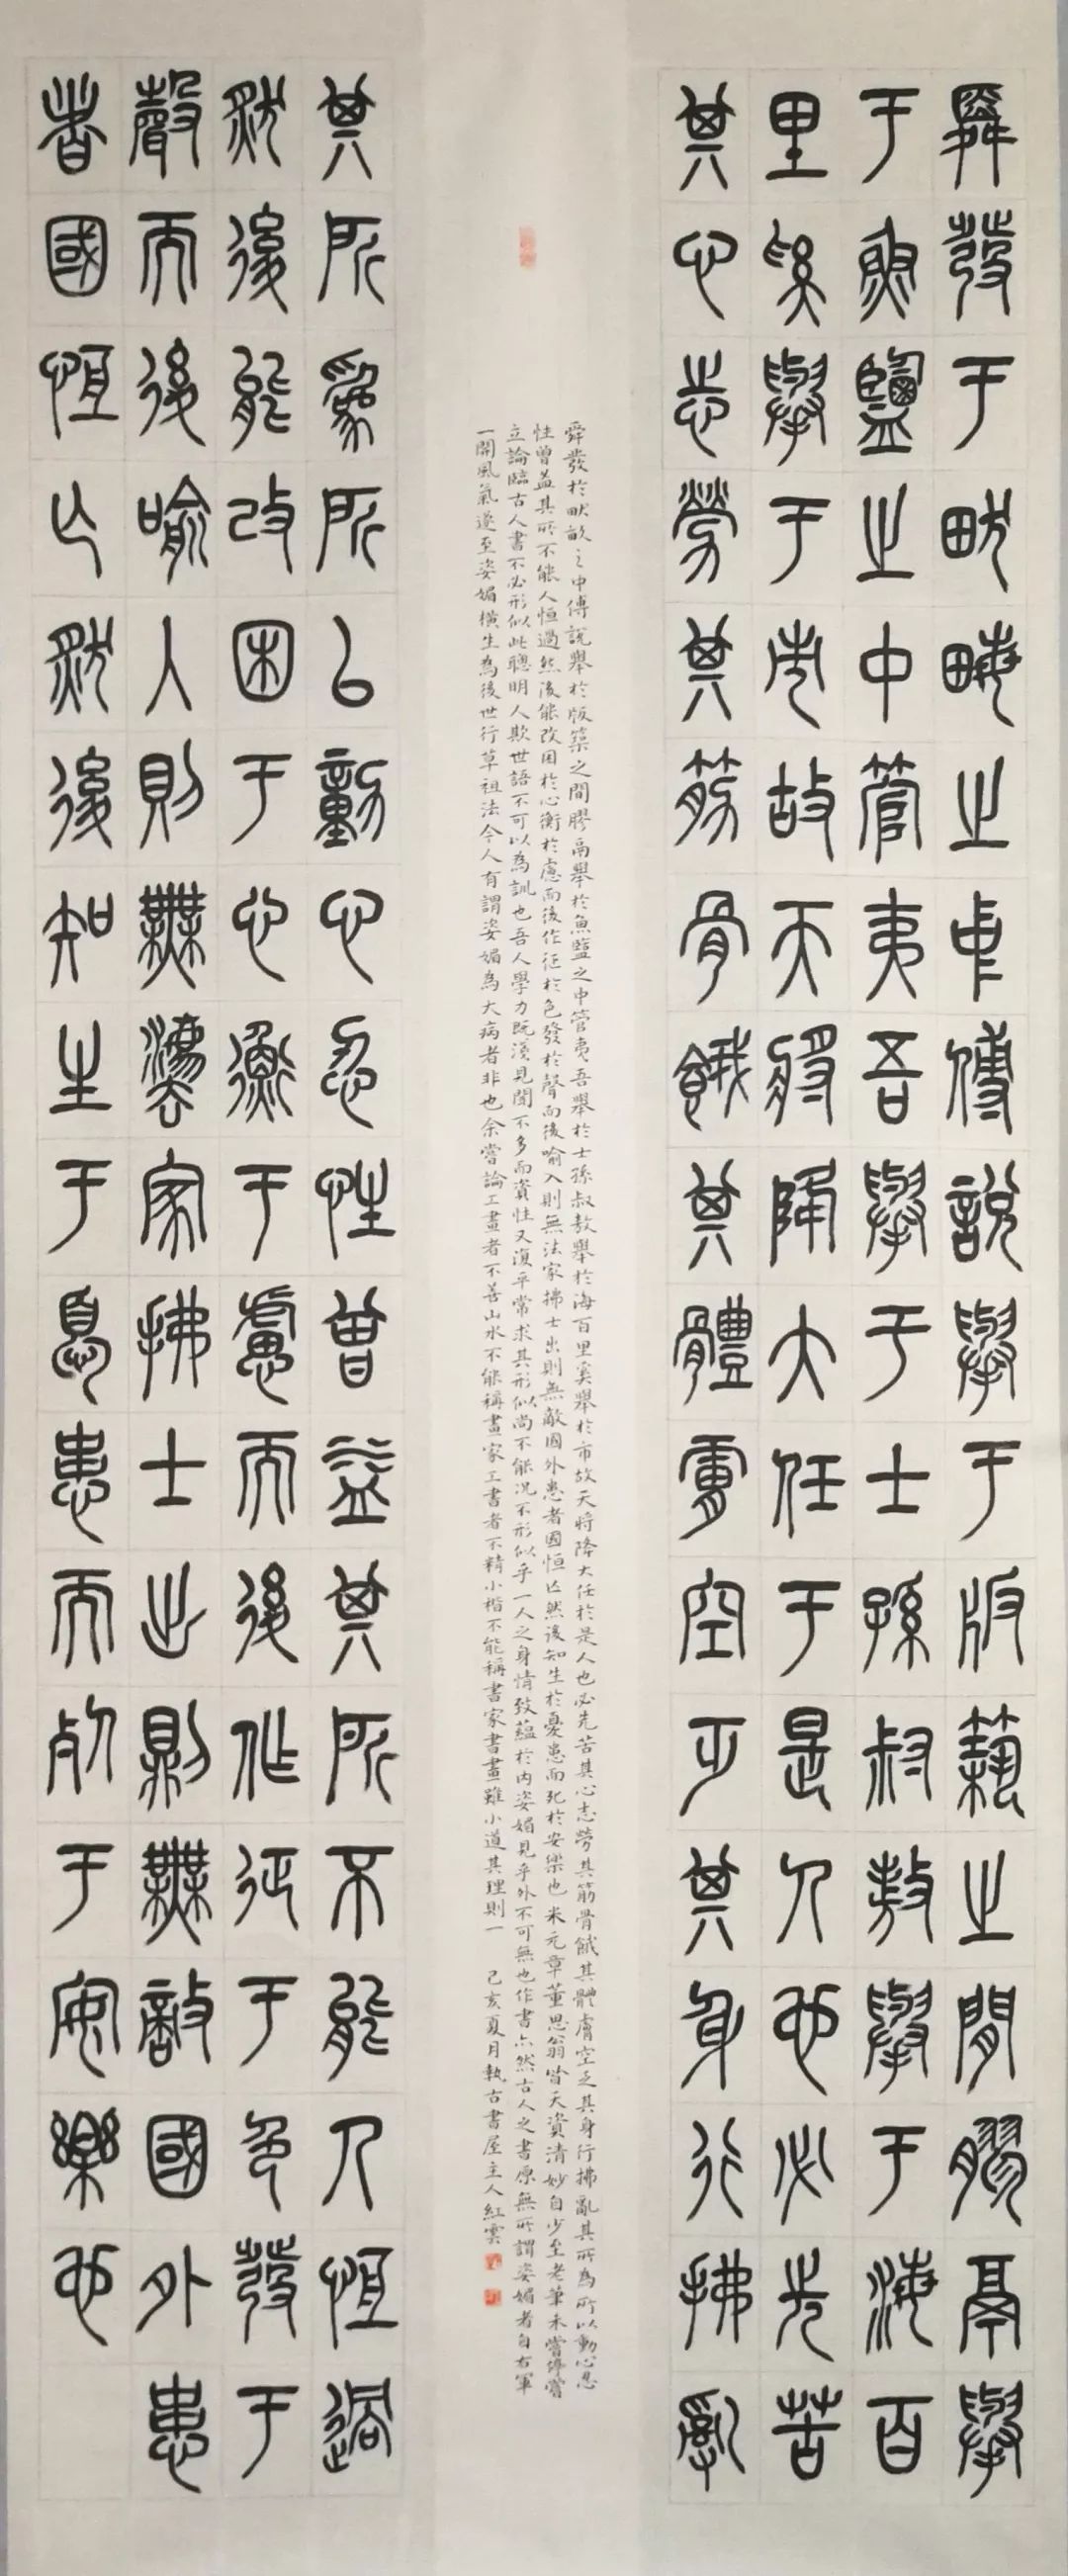 舜發于畎畝之中傅說舉于版築之閒膠鬲舉
于魚鹽之中管夷吾舉于士孫叔敖舉于海百
里奚舉于市故天將降大任于是人也必先苦
其心志勞其筋骨餓其體膚空乏其身行拂亂
其所為所以動心忍性曾益其所不能人恒過
然後能改困于心衡于慮而後作征于色發于
聲而後喻入則無灋家拂士出則無敵國外患
者國恒亡然後知生于憂患而死于安樂也
舜發於畎畝之中傅說舉於版築之間膠鬲舉於魚鹽之中管夷吾舉於士孫叔敖舉於海百里奚舉於市故天將降大任於是人也必先苦其心志勞其筋骨餓其體膚空乏其身行拂亂其所為所以動心忍
性曾益其所不能人恒過然後能改困於心衡於慮而後作征於色發於聲而後喻入則無法家拂士出則無敵國外患者國恒亡然後知生於憂患而死於安樂也米元章董思翁皆天資清妙自少至老筆未嘗停嘗
立論臨古人書不必形似此聰明人欺世語不可以為訓也吾人學力既淺見聞不多而資性又復平常求其形似尚不能況不形似乎一人之身情致蘊於內姿媚見乎外不可無也作書亦然古人之書原無所謂姿媚者自右軍
一開風氣遂至姿媚橫生為後世行草祖法今人有謂姿媚為大病者非也余嘗論工畫者不善山水不能稱畫家工書者不精小楷不能稱書家書畫雖小道其理則一 己亥夏月執古書屋主人紅雲